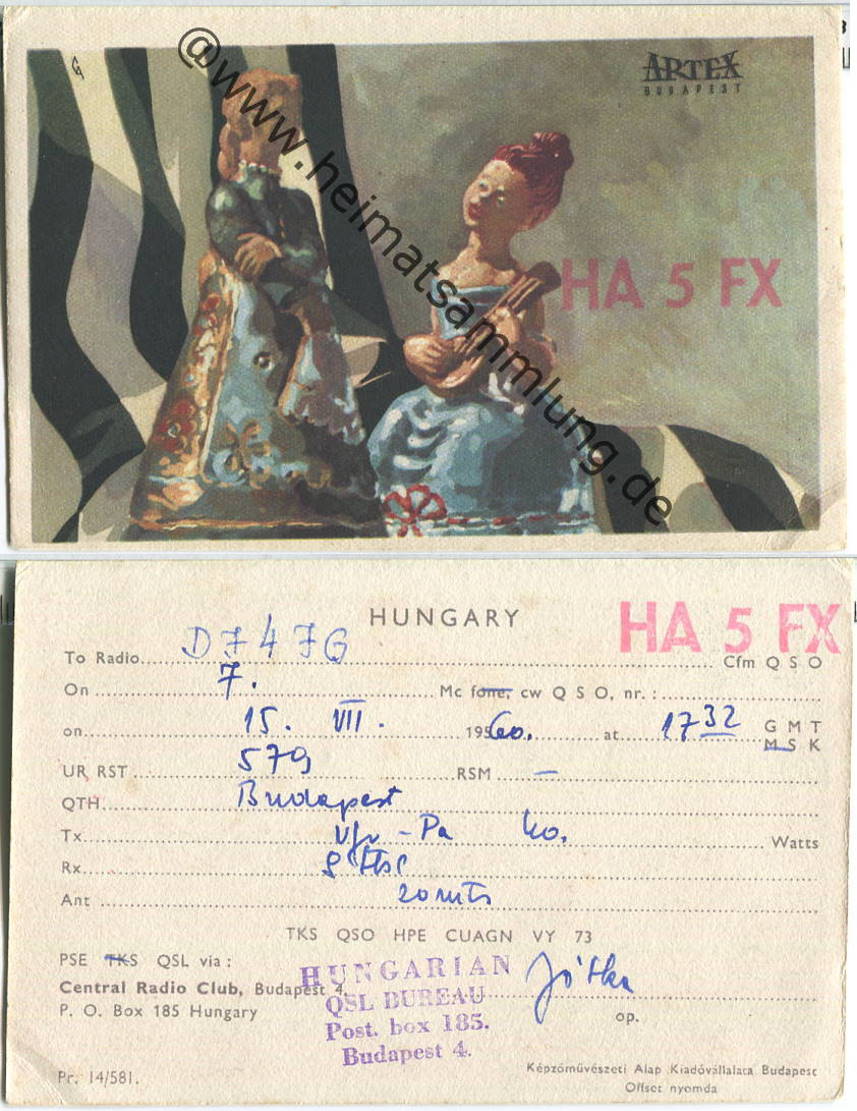 @www.heimatsammlung.de
ARTEX
BUDAPEST
HA 5 FX
HUNGARY
HA 5 FX
To Radio D747G Cfm QSO
On 7. Mc fone, cw QSO, nr.:
on 15. VII. 19560. at 1732 GMT
MSK
UR RST 579 RSM —
QTH Budapest
Tx Vfo - Pa 40. Watts
Rx 9
Ant 20 mts
TKS QSO HPE CUAGN VY 73
PSE TKS QSL via:
Central Radio Club, Budapest 4.
P. O. Box 185 Hungary
HUNGARIAN
QSL BUREAU
Post. box 185.
Budapest 4.
op.
Pr. 14/581.
Képzőművészeti Alap Kiadóvállalata Budapest
Offset nyomda